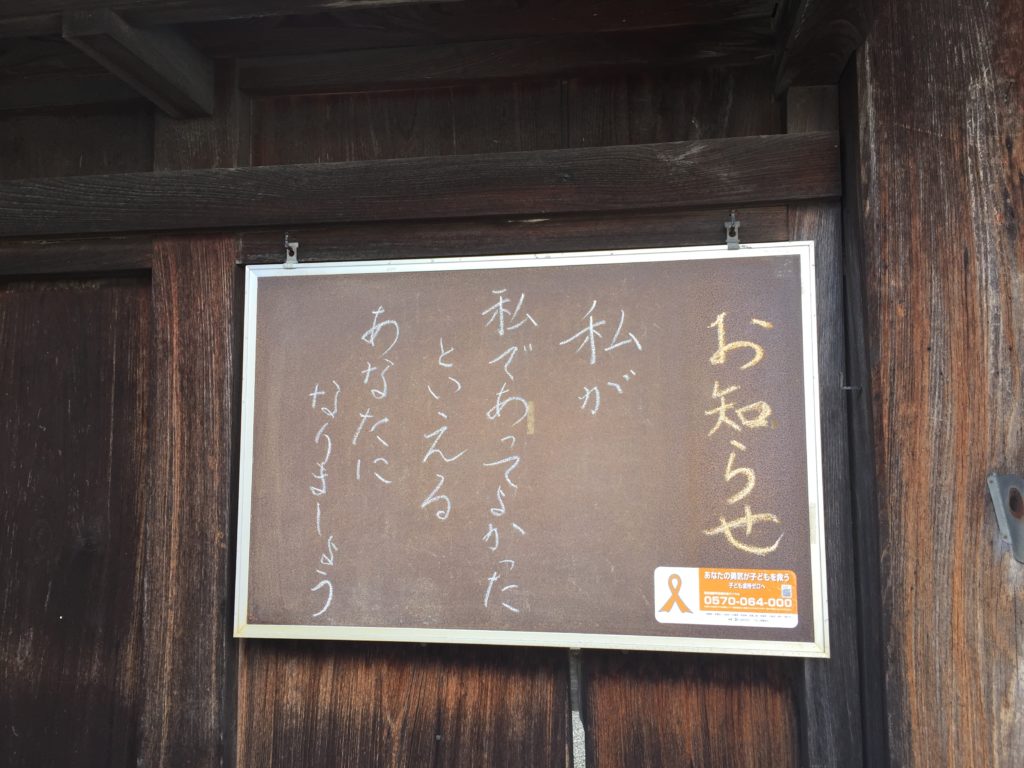 お知らせ
私が
私であってよかった
といえる
あなたに
なりましょう
あなたの勇気が子どもを救う
子ども虐待ゼロへ
0570-064-000